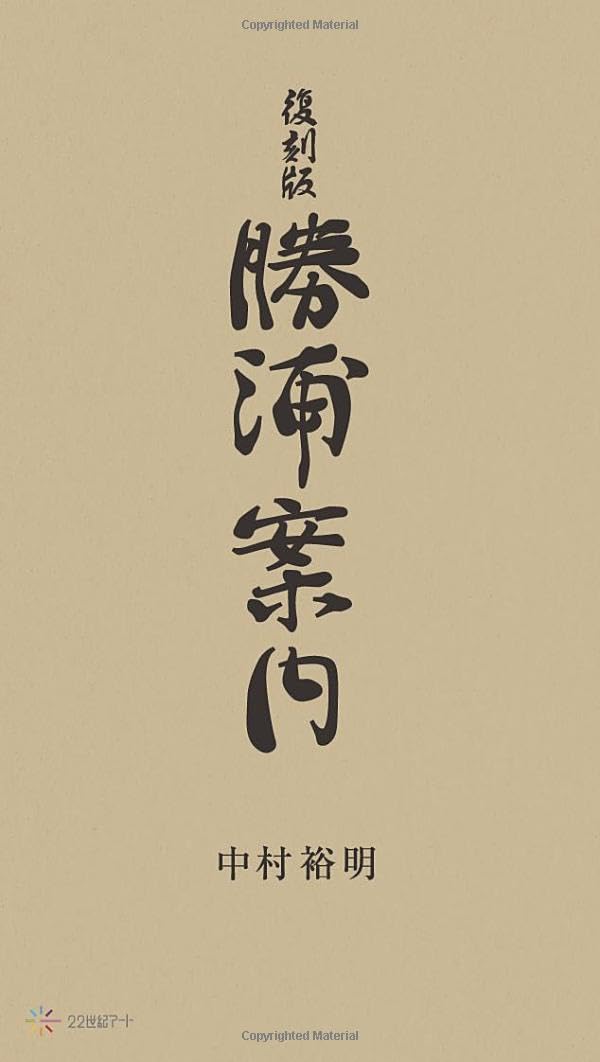 Copyrighted Material
復刻版
勝浦案内
中村裕明
22世紀アート
Copyrighted Material